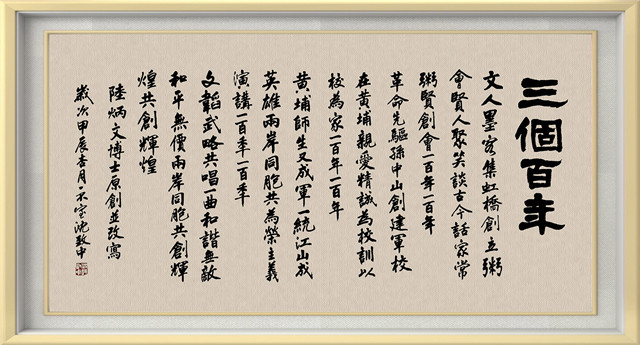 三個百年
文人墨客集虹橋創立粥
會賢人聚笑談古今話家常
粥賢創會一百年一百年
革命先驅孫中山創建軍校
在黄埔親愛精誠為校訓以
校為家一百年一百年
黄埔師生又成軍一統江山成
英雄兩岸同胞共為榮主義
演講一百季一百季
文韜武略共唱一曲和諧無敵
和平無價兩岸同胞共創輝
煌共創輝煌
陸炳文博士原創並改寫
歲次甲辰杏月一不室沈致中